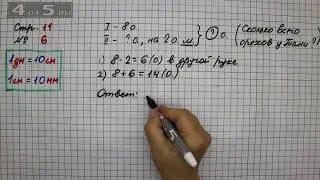 4 ОТ 5 RU
Стр. 11
№ 6
1дм = 10см
1см = 10мм
I - 8 о.
II - ? о., на 2 о. м.
? о. (Сколько всего орехов у Тани?)
1) 8 - 2 = 6 (о.) в другой руке
2) 8 + 6 = 14 (о.)
Ответ: